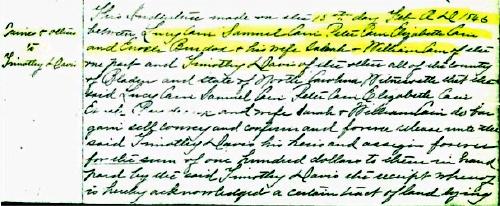 Cain & others
to
Timothy L Davis
This Indenture made on the 15th day Feb A D 1846
between Lucy Cain Samuel Cain Peter Cain Elizabeth Cain
and Enoch & his wife Sarah & William Cain of the
one part and Timothy L Davis of the other all of the County
of Bladen and State of North Carolina Witnesseth that the
said Lucy Cain Samuel Cain Peter Cain Elizabeth Cain
and wife Sarah & William Cain do bar
gain sell convey and confirm and forever release unto the
said Timothy L Davis his heirs and assigns forever
for the sum of one hundred dollars to them in hand
paid by the said Timothy L Davis the receipt whereof
is hereby acknowledged a certain tract of land lying